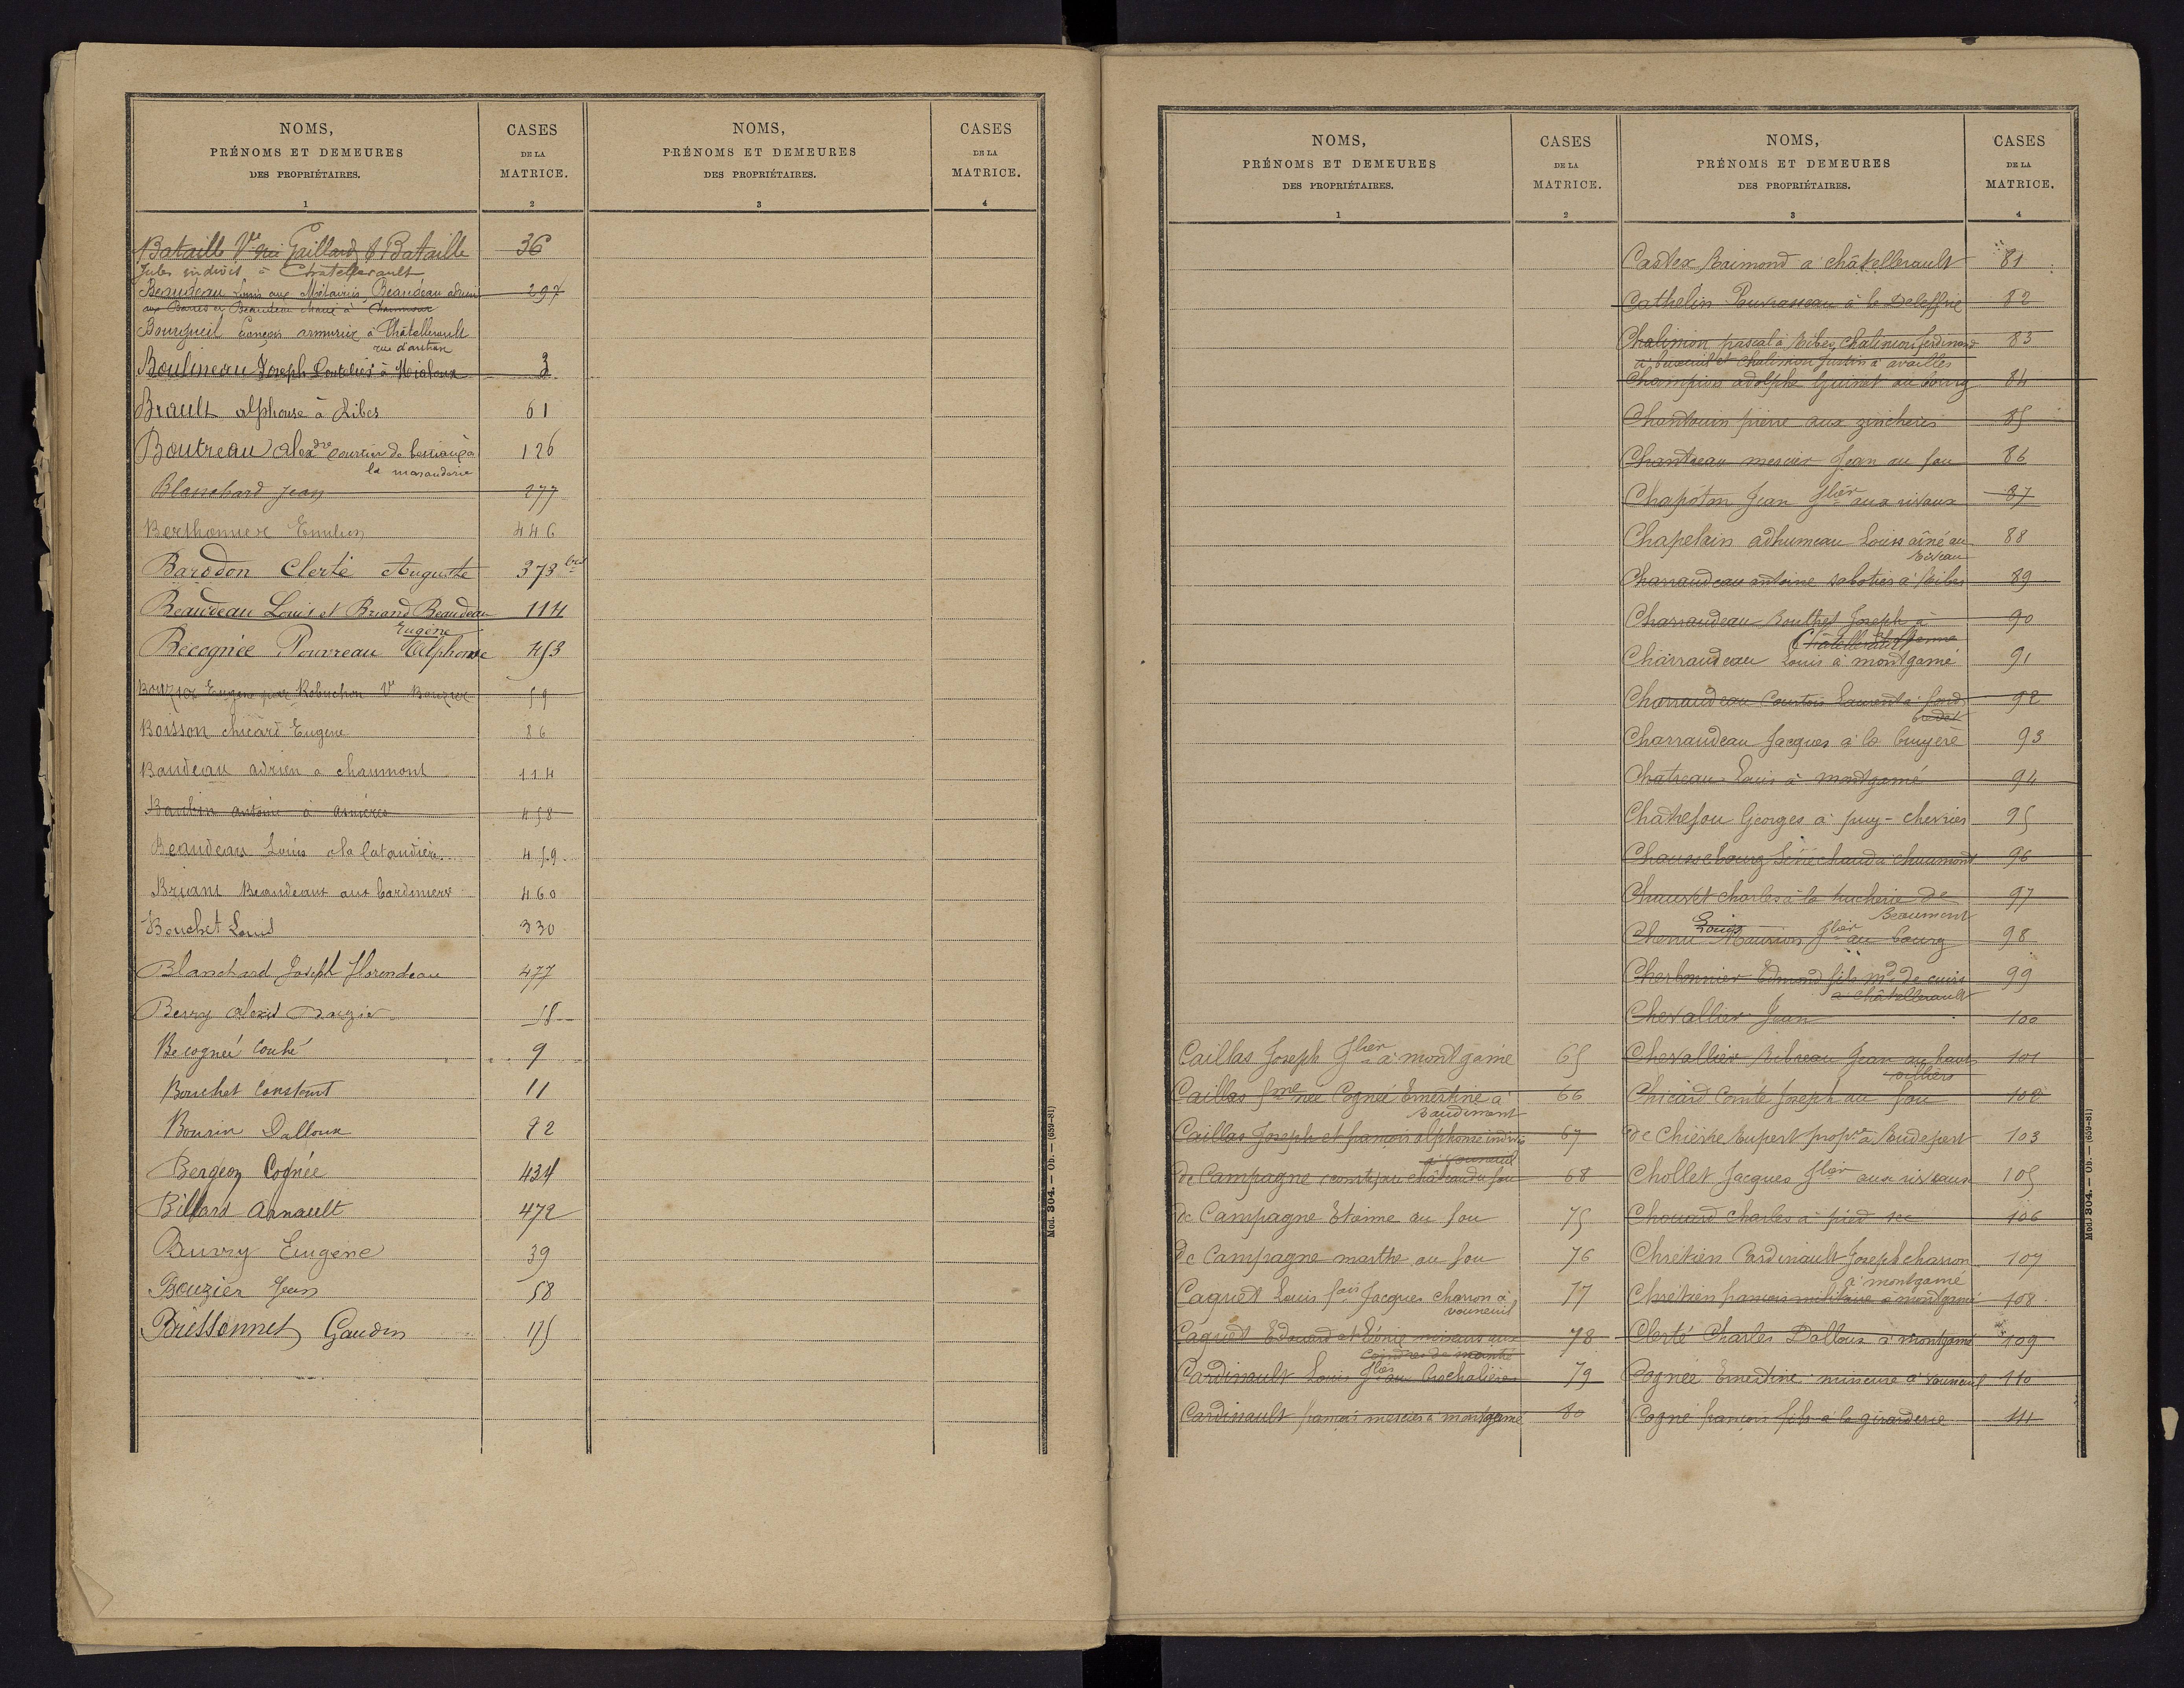 NOMS,
PRÉNOMS ET DEMEURES
DES PROPRIÉTAIRES.
1
CASES
DE LA
MATRICE.
2
NOMS,
PRÉNOMS ET DEMEURES
DES PROPRIÉTAIRES.
3
CASES
DE LA
MATRICE.
4
Bataille Vve née Gaillard & Bataille 36
Jules indivis à Châtellerault
Beaudeau Louis aux Métairies Beaudeau adrien 297
aux Barres et Beaudeau à Chaumont
Bourgueil françois armurier à Châtellerault
rue d'antran
Boulineau Joseph Coutelier à 3
Brault alphonse à Ribes 61
Boutreau Alexdre courtier de bestiaux à 126
la marauderie
Blanchard Jean 277
Berthonnier Emilien 446
Barodon Clerté Auguste 373 bis
Beaudeau Louis et Briand Beaudeau 114
Eugène
Bécognée Pourreau Alphonse 453
Bouzier Eugène par Robuchon Ve Bouzier 59
Boisson chicard Eugène 86
Baudeau adrien a chaumont 114
Baubin antoine à asnières 458
Beaudeau Louis a la Cataudière 459
Briant Beaudeaux aux bardiniers 460
Bouchet Louis 330
Blanchard Joseph florendeau 477
Berry Alexis 58
Becognée Couhé 9
Bouchet Constant 11
Bourin Dalloux 92
Bergeon Cognée 434
Billard Arnault 472
Buvry Eugène 39
Bouzier Jean 58
Brissonnet Gaudin 175
Mod. 304. — Ob. — (659-81)
NOMS,
PRÉNOMS ET DEMEURES
DES PROPRIÉTAIRES.
1
CASES
DE LA
MATRICE.
2
NOMS,
PRÉNOMS ET DEMEURES
DES PROPRIÉTAIRES.
3
CASES
DE LA
MATRICE.
4
Caillas Joseph Jlier à montgamé 65
Caillas fme née Cognée Ernestine à 66
Baudiment
Caillas Joseph et françois alphonse indivis 67
à Vouneuil
de Campagne comte au château du fou 68
de Campagne Etienne au fou 75
de Campagne marthe au fou 76
Caquet Louis fais Jacques charron à 77
vouneuil
Caquet Edouard et mineurs aux 78
Cardinault Louis Jlier au Crochalières 79
Cardinault françois mercier à montgamé 80
Castex Raimond a châtellerault 81
Cathelin à la 82
Chalimon pascal à Ribes, Chalimon ferdinand 83
à buxeuil et Chalimon Justin à availles
Champion adolphe Guinet au bourg 84
Chantouin pierre aux 85
Chantreau mercier Jean au fou 86
Chapoton Jean Jlier aux rivaux 87
Chapelain adhumeau Louis aîné au 88
Riveau
Charraudeau antoine sabotier à Ribes 89
Charraudeau Bouthet Joseph à 90
Châtellerault
Charraudeau Louis à montgamé 91
Charraudeau Courtois Laurent à fond 92
Charraudeau Jacques à la bruyère 93
Chatreau Louis à montgamé 94
Châtrefou Georges à puy-chevrier 95
Chaussebourg Sénéchaud à chaumont 96
Chauvet charles à la tucherie de 97
Beaumont
Louis
Chenu Maurion Jlier au bourg 98
Cherbonnier Edmond fils md de cuirs 99
à châtellerault
Chevallier Jean 100
Chevallier Ribreau Jean au haut 101
villiers
Chicard Comte Joseph au fou 102
de Chièvre Rupert propre à Rudepert 103
Chollet Jacques Jlier aux riveaux 105
Chouard Charles à pied sec 106
Chrétien Cardinault Joseph charron 107
à montgamé
Chrétien françois militaire à montgamé 108
Clerté Charles Dalloux à montgamé 109
Cognée Ernestine mineure à Vouneuil 110
Cogné françois fils à la girarderie 111
Mod. 304. — Ob. — (659-81)